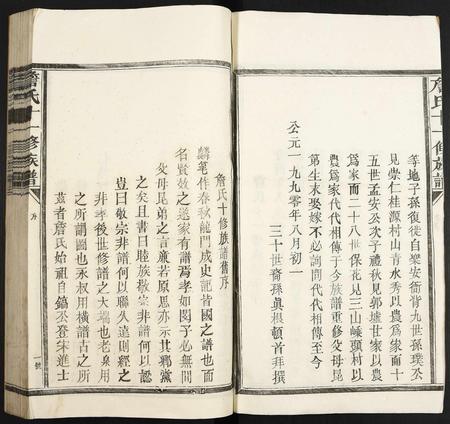 詹氏十一修族譜
等地子孫復徙自樂安衙背九世孫璞公
見崇仁桂源村山青水秀以農為家而十
五世孟安公次子禮秋見郭墟世家以農
為家而二十八世保花見三山嵊頭村以
農為家代代相傳于今族譜重修父母昆
第生末娶嫁不必詢問代代相傳至今
公元一九九零年八月初一
三十世裔孫真根頓首拜撰
詹氏十一修族譜
序
一號
詹氏十修族譜舊序
麟筆作春秋龍門成史記皆國之譜也而
名賢效之遂家有譜焉孝如閔子必無間
父母昆弟之言廉若原思亦示其鄰黨
之矣且書曰睦族敬宗非譜何以認
豈曰敬宗非譜何以聯久遠則經之
非季後世修譜之大端也老泉用
之所謂圖也永叔用橫譜古之所
茲者詹氏始祖自鎬公登宋進士